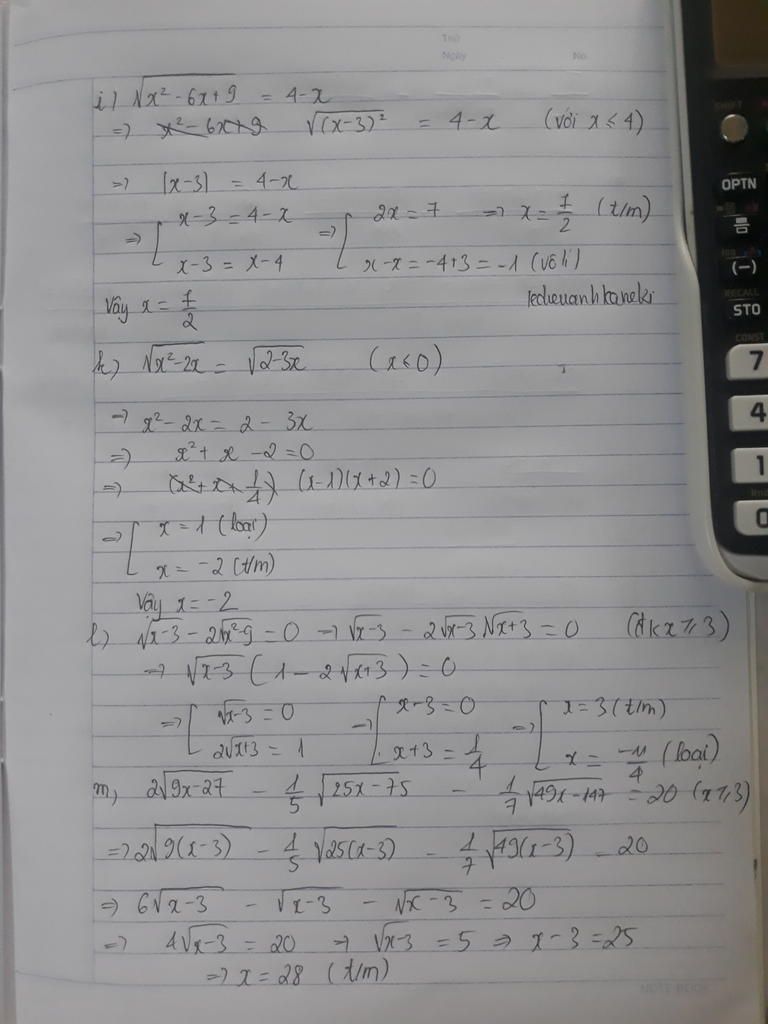 Thứ
Ngày No
i) √(x² - 6x + 9) = 4 - x
=> x² - 6x + 9 √((x-3)²) = 4 - x (với x ≤ 4)
=> |x-3| = 4 - x
=> [ x - 3 = 4 - x => [ 2x = 7 => x = 7/2 (t/m)
x - 3 = x - 4 x - x = -4+3 = -1 (vô lí)
Vậy x = 7/2 lecheuanhkaneki
k) √(x² - 2x) = √(2 - 3x) (x ≤ 0)
=> x² - 2x = 2 - 3x
=> x² + x - 2 = 0
=> (x² + x + 1/4) (x-1)(x+2) = 0
=> [ x = 1 (loại)
x = -2 (t/m)
Vậy x = -2
l) √(x-3) - 2√(x²-9) = 0 => √(x-3) - 2√(x-3)√(x+3) = 0 (đk x ≥ 3)
=> √(x-3) (1 - 2√(x+3)) = 0
=> [ √(x-3) = 0 => [ x - 3 = 0 => [ x = 3 (t/m)
2√(x+3) = 1 x + 3 = 1/4 x = -11/4 (loại)
m, 2√(9x-27) - 1/5 √(25x-75) - 1/7 √(49x-147) = 20 (x ≥ 3)
=> 2√(9(x-3)) - 1/5 √(25(x-3)) - 1/7 √(49(x-3)) = 20
=> 6√(x-3) - √(x-3) - √(x-3) = 20
=> 4√(x-3) = 20 => √(x-3) = 5 => x - 3 = 25
=> x = 28 (t/m)
NOTE BOOK
SHIFT
OPTN
(-)
RECALL
STO
CONST
7
4
1
0